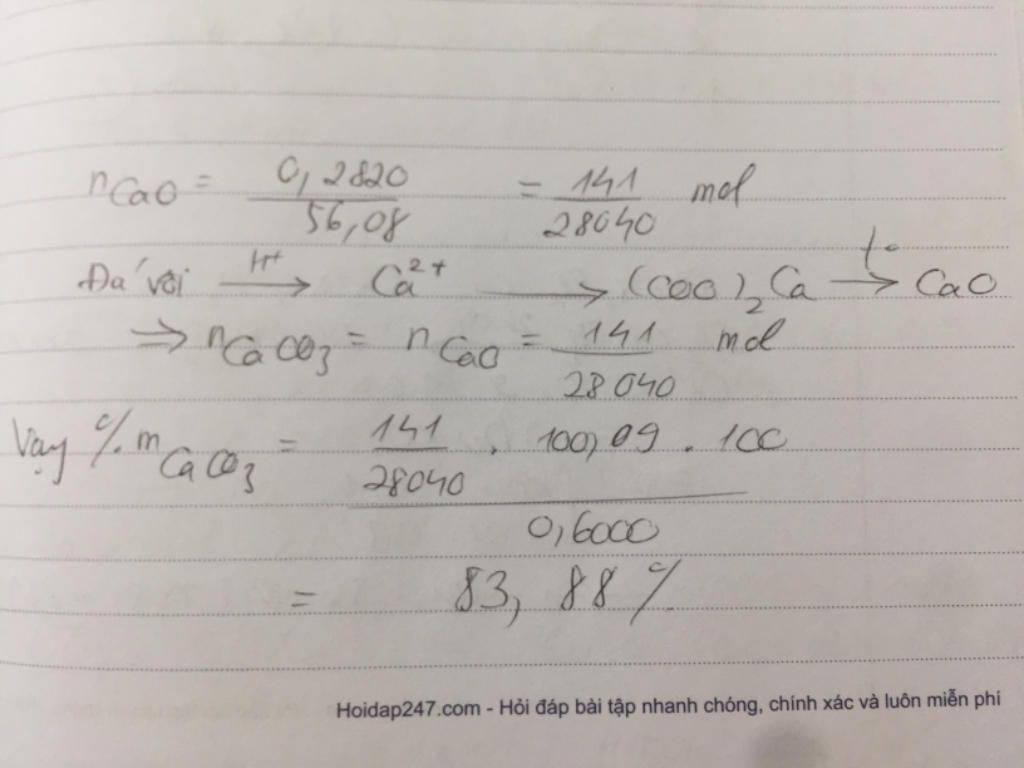 nCaO = 0,2820 / 56,08 = 141 / 28040 mol
Đá vôi —H+→ Ca2+ → (COO)2Ca —t°→ CaO
⇒ nCaCO3 = nCaO = 141 / 28040 mol
Vạy %mCaCO3 = 141 / 28040 . 100,09 . 100 / 0,6000
= 83,88 %
Hoidap247.com - Hỏi đáp bài tập nhanh chóng, chính xác và luôn miễn phí